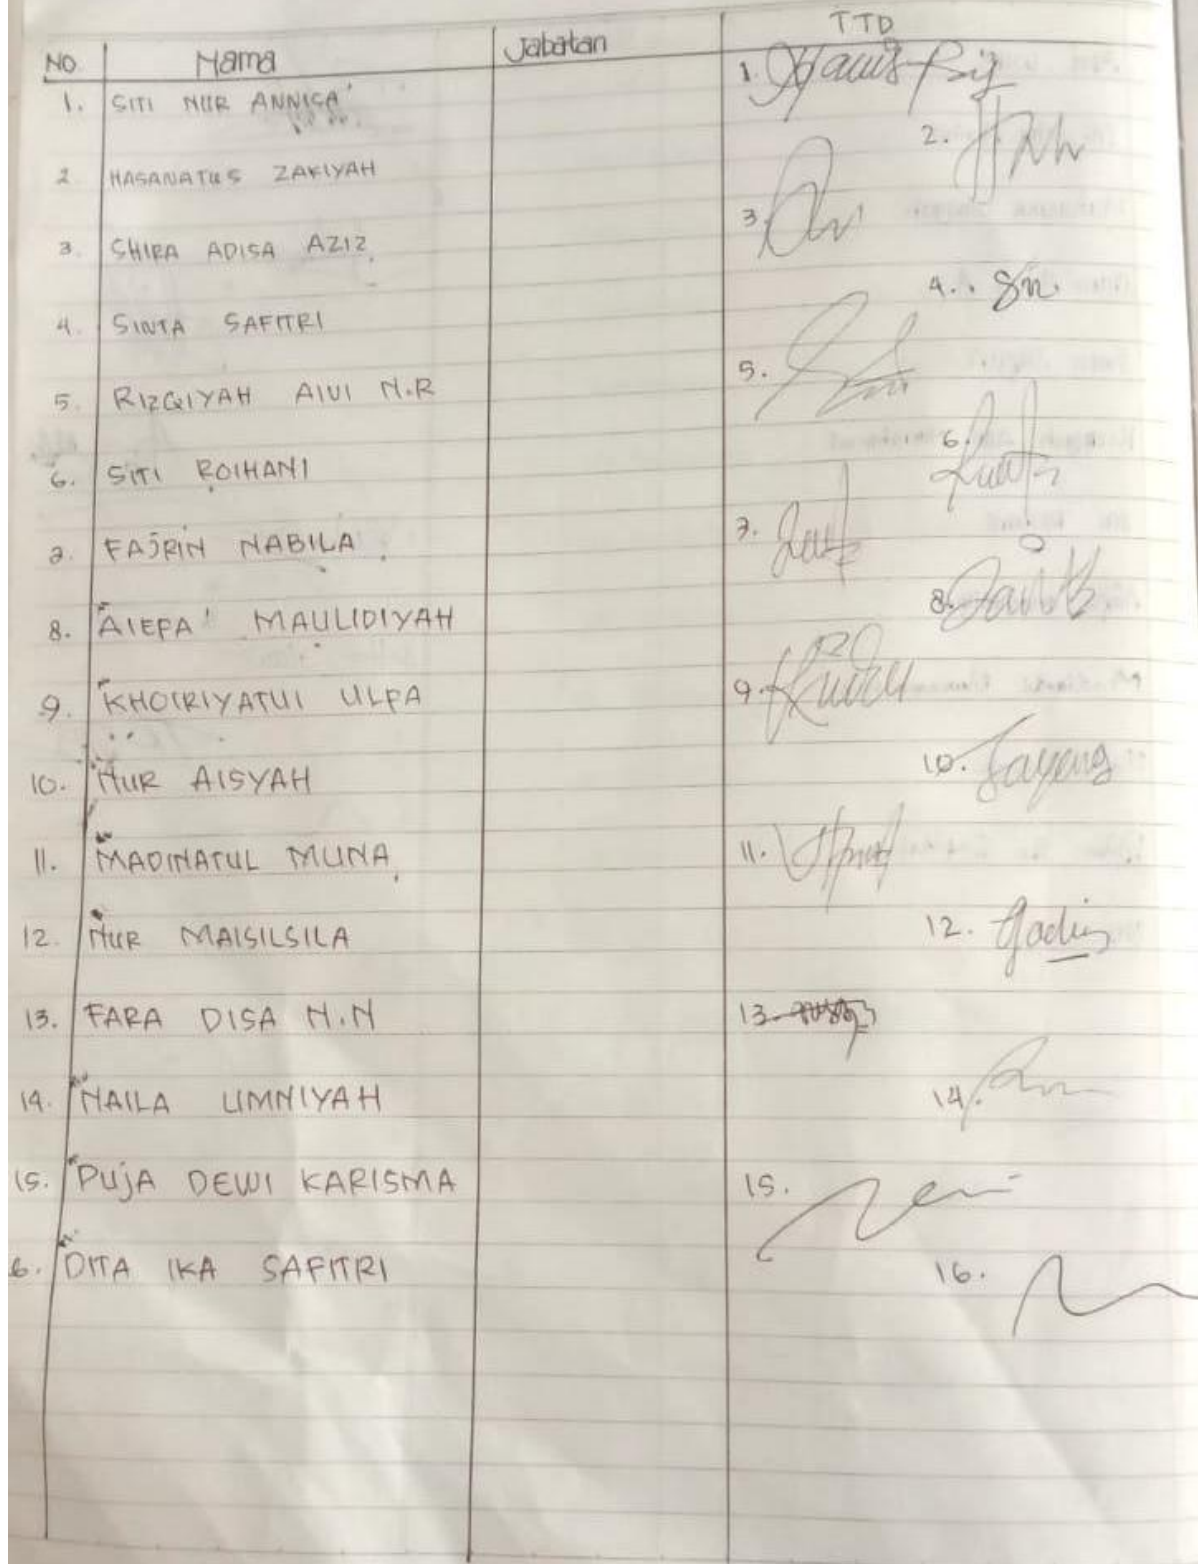 NO Nama Jabatan TTD
1. SITI NUR ANNISA' 1.
2 HASANATUS ZAKIYAH 2.
3. SHIRA ADISA AZIZ 3.
4. SINTA SAFITRI 4.
5. RIZQIYAH AIUI N.R 5.
6. SITI ROIHANI 6.
7. FAJRIN NABILA 7.
8. MAULIDIYAH 8.
9. KHOIRIYATUI ULFA 9.
10. NUR AISYAH 10.
11. MADINATUL MUNA 11.
12. NUR MAISILSILA 12.
13. FARA DISA N.N 13.
14. NAILA UMNIYAH 14.
15. PUJA DEWI KARISMA 15.
6. DITA IKA SAFITRI 16.